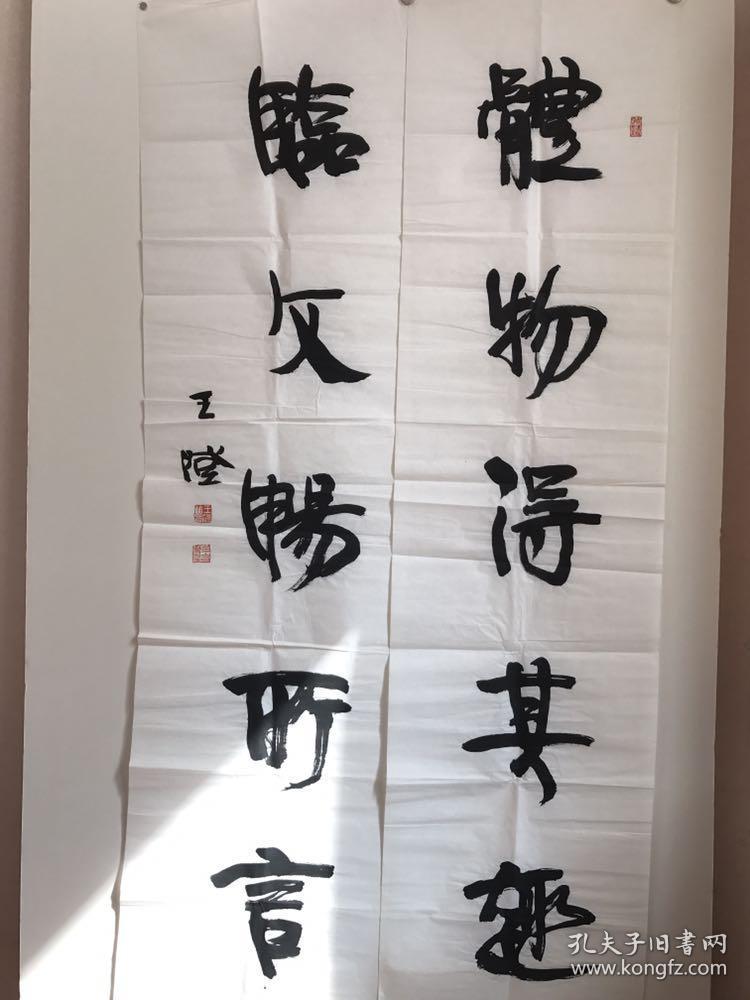 體物得其趣
臨文暢所言
王澄
孔夫子旧書网
www.kongfz.com